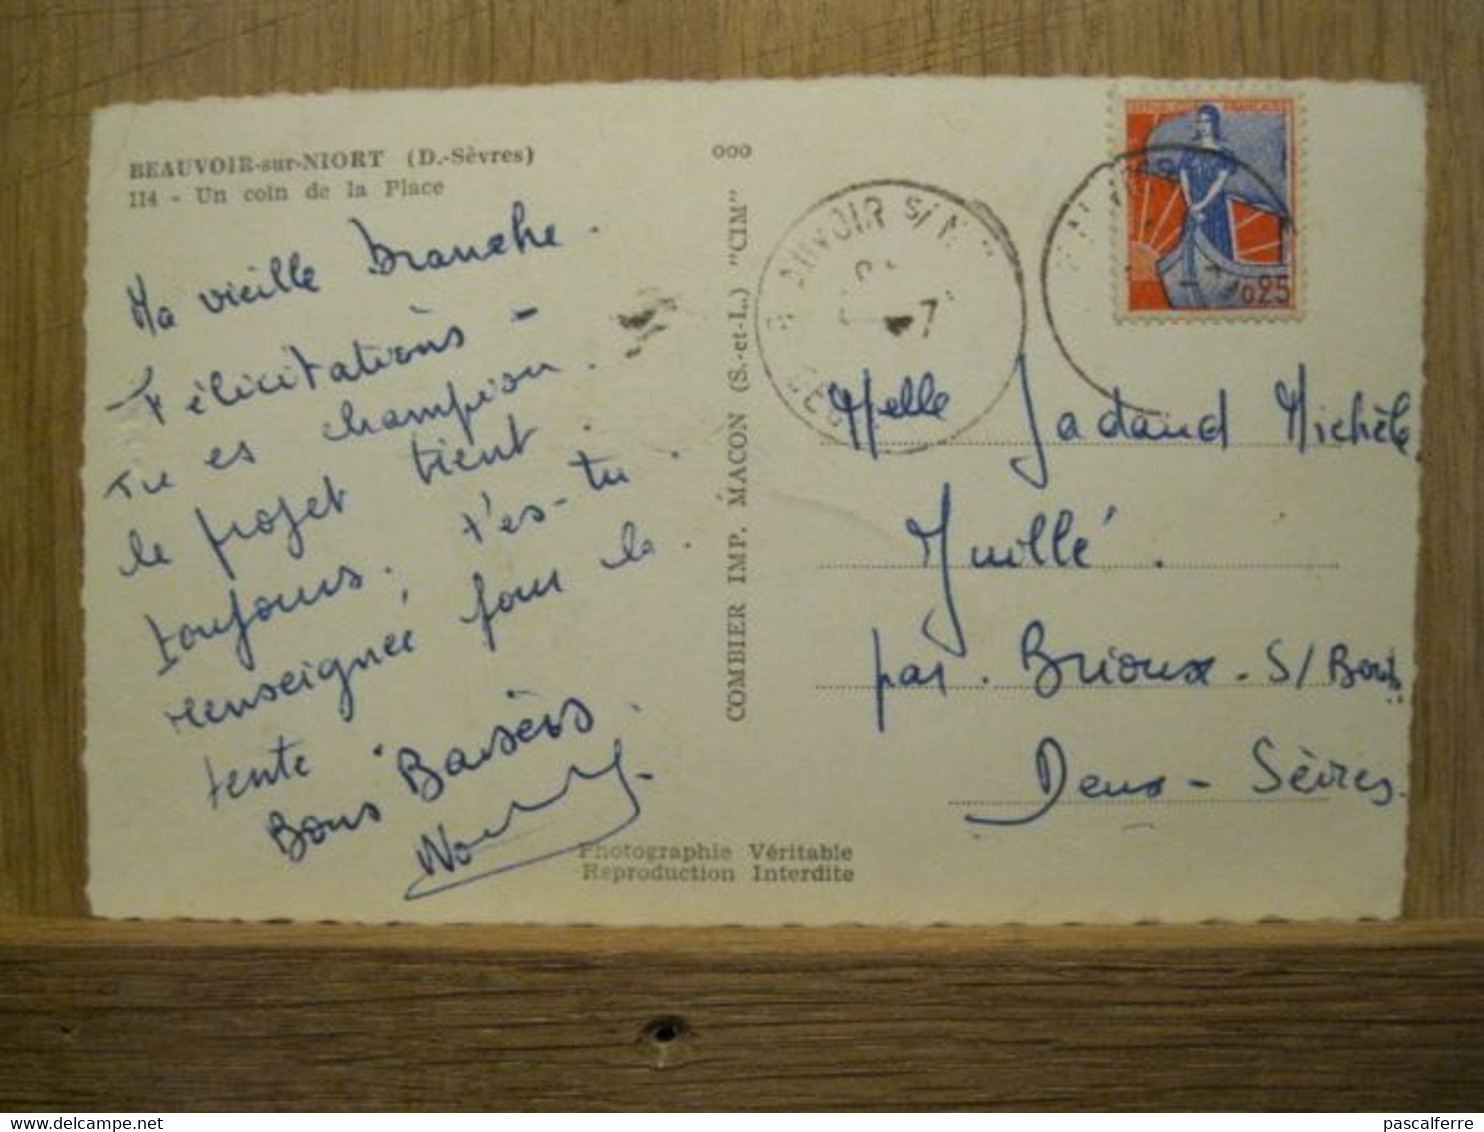 BEAUVOIR-sur-NIORT (D.-Sèvres)
114 - Un coin de la Place
Ma vieille branche.
Félicitations -
Tu es champion.
le projet tient
toujours. t'es-tu
renseignée pour la
tente
Bons Baisers.
ooo
COMBIER IMP. MACON (S.-et-L.) "CIM"
Photographie Véritable
Reproduction Interdite
AUVOIR S/N
0,25
Melle Jadaud Michèle
Juillé.
par. Brioux - S/Bout.
Deux - Sèvres.
pascalferre